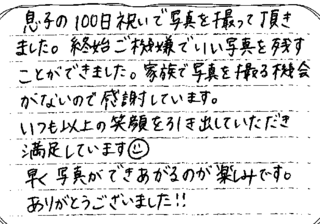 息子の100日祝いで写真を撮って頂き
ました。終始ご機嫌でいい写真を残す
ことができました。家族で写真を撮る機会
がないので感謝しています。
いつも以上の笑顔を引き出していただき
満足しています☺
早く写真ができあがるのが楽しみです。
ありがとうございました!!